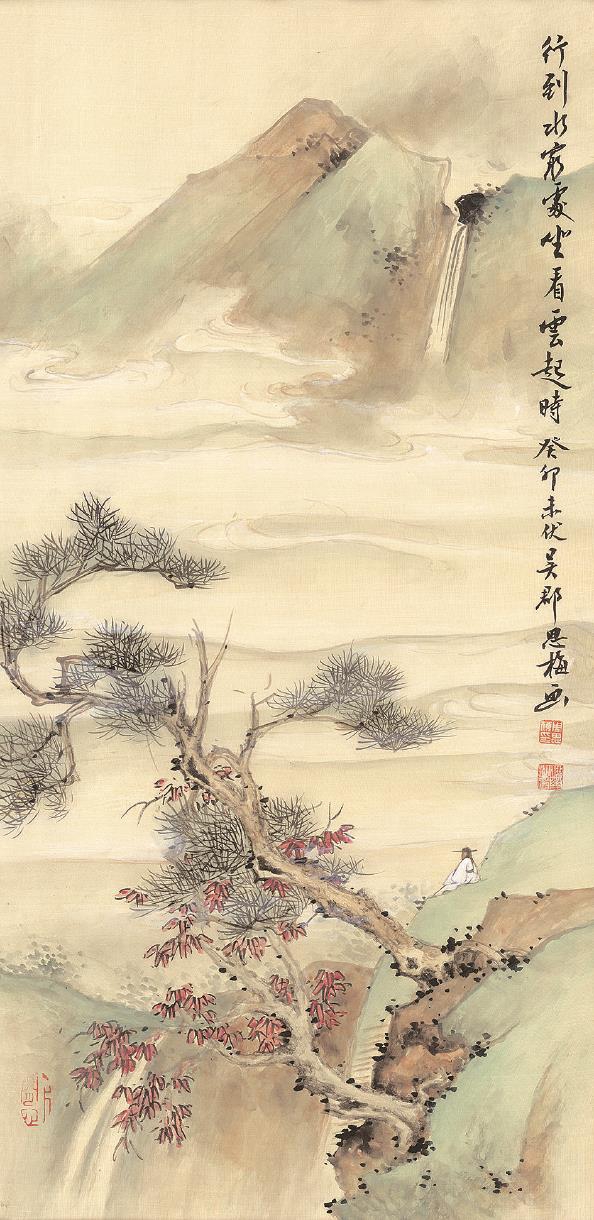 行到水窮處坐看雲起時 癸卯末伏吳郡思梅画